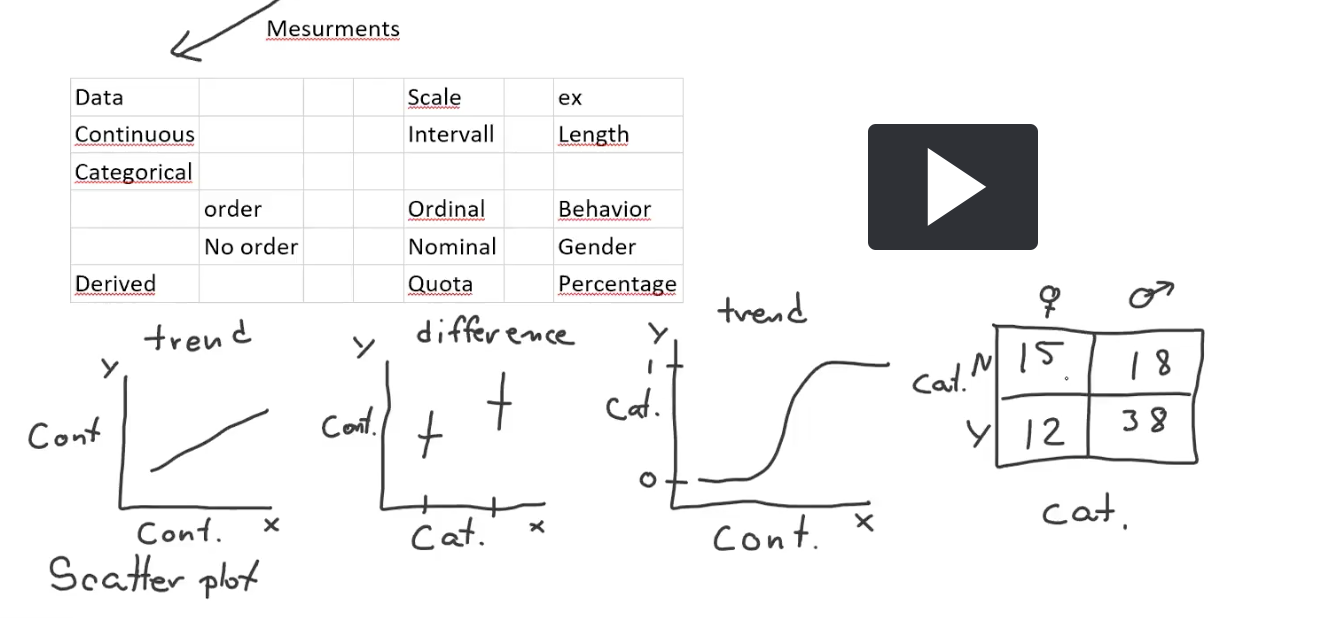 Mesurments
Data Scale ex
Continuous Intervall Length
Categorical
order Ordinal Behavior
No order Nominal Gender
Derived Quota Percentage
trend
Y
Cont
Cont. x
Scatter plot
difference
Y
Cont.
Cat. x
trend
Y
1
Cat.
0
Cont. x
♀ ♂
Cat. N 15 18
Y 12 38
Cat.